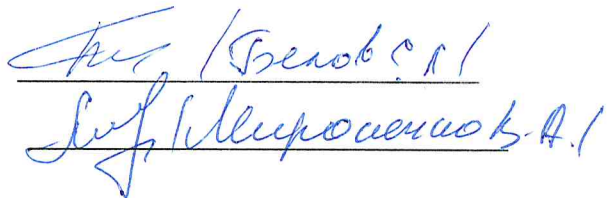 /Белов С.Л/
/Мироненко В.А./